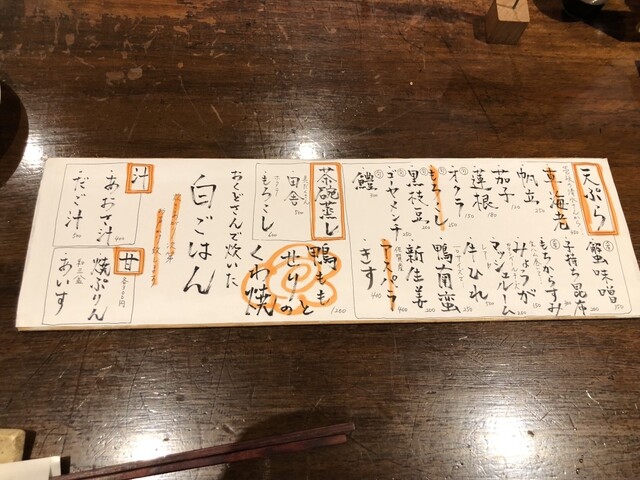 天ぷら
車海老
帆立
茄子
150
蓮根
180
オクラ
150
もろこし
黒枝豆
200
ゴーヤミンチ
鱧
蟹味噌
350
子持ち昆布
もちからすみ
みょうが
マッシュルーム
牛ひれ
鴨南蛮
250
新生姜
200
アスパラ
400
きす
400
茶碗蒸し
田舎
もろこし
鴨ももと
せりの
くわ焼
1200
おくどさんで炊いた
白ごはん
汁
あおさ汁
400
だご汁
500
甘
各300円
焼ぷりん
和三盆
あいす